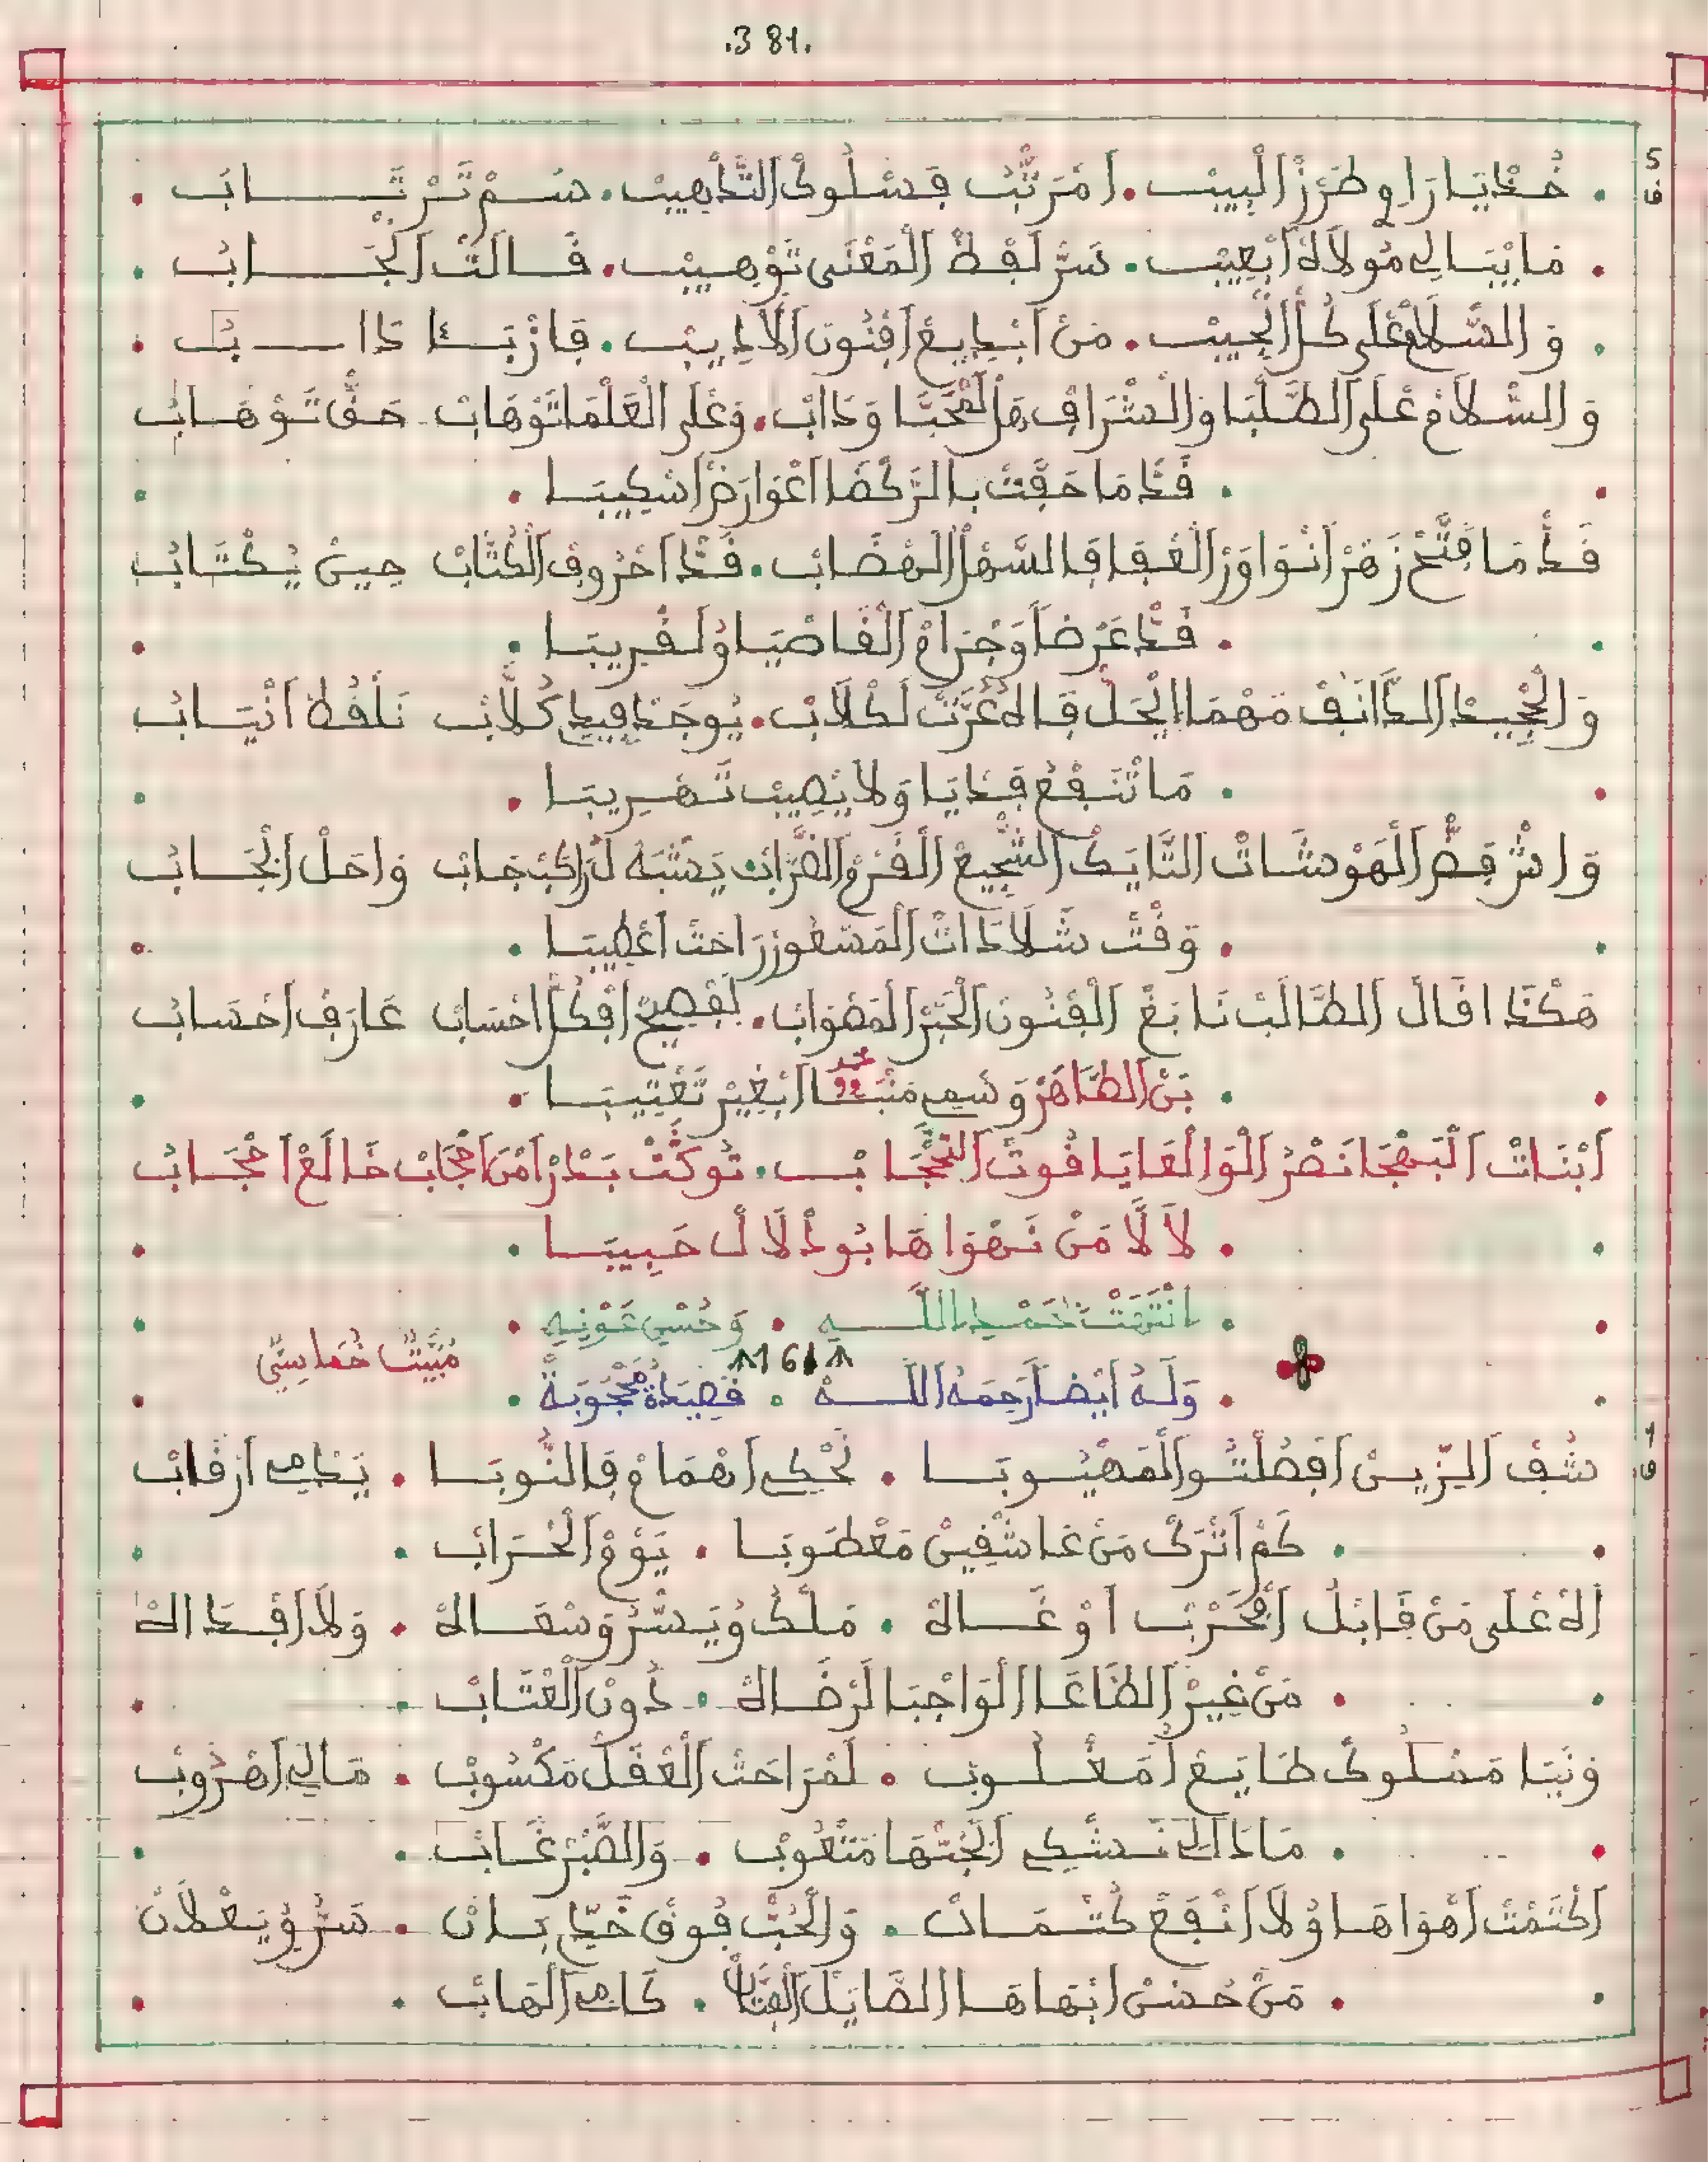 .381.
5
ف
خُذْ يَا رَاوِ طَرْزْ اَلْبِيبْ . اَمْرَتّبْ فَسْلُوكْ اَلتّذْهِيبْ . سُمْ تَرْتَابْ
مَا يْبَالِي مُولَاهْ اَبْعِيبْ . سَرّ لَفْظْ اَلْمَعْنَى تَوْهِيبْ . قَالَتْ اَنْجَابْ
وَ السّلَامْ عْلَى كُلْ اَنْجِيبْ . مَنْ اَبْدِيعْ اَفْنُونْ اَلَادِيبْ . فَازْ بَادَابْ
وَ السّلَامْ عْلَى اَلطّلْبَا وَالشْرَافْ هَلْ لَمْحَبَّا وَدَابْ . وَعْلَى اَلْعَلْمَا تَوْهَابْ حَقّ تَوْهَابْ
قَدْ مَا حَقّتْ بِالرَّكْضَا اَعْوَارَضْ اَشْكِيبَا
قَدْ مَا فَتّحْ زَهْرْ اَنْوَاوَرْ اَلْعْفَا فَالسّهْلْ اَلْهْضَابْ . قَدْ اَحْرُوفْ اَلْكْتَابْ حِينْ يُكْتَابْ
قَدْ عَرْضَا وَجْرَامْ اَلْقَاصْيَا وُلَقْرِيبَا
وَ اَلْجْحِيدْ اَلدَّانَفْ مَهْمَا اِنْحَلْ قَالُه عُرَّتْ لَكْلَابْ . يُوجَدْ فِيدِي كُلَّابْ نَلْقُطْ اَنْيَابُ
مَا تْنَفْعُ فَدْيَا وَلَا يْصِيبْ تَهْرِيبَا
وَ اِشْ فَضّ اَلْهَوْشَاتْ التّايَكْ اَلشّجِيعْ اَلْقَرْمْ اَلضّرَّابْ يَشْبَهْ لَرَّاكَبْ جَابْ وَاحَلْ اَنْجَابْ
وَقْتْ شَلَا ذَاتْ اَلْمَسْعُورْ رَاحَتْ اَعْطِيبَا
هَكْذَا قَالْ اَلطّالَبْ نَابَغْ اَلْفْنُونْ اَلْحَبْرْ اَلْمَصْوَابْ . لَفْصِيحْ اَفْكُلْ اَحْسَابْ عَارَفْ اَحْسَابْ
بَنْ اَلطَّاهَرْ وَسْمِي مَنْبَّا اَبْغِيرْ تَعْتِيبَا
محمد
92
اَبْنَاتْ اَلْبَهْجَا نَصْرْ اَلْوَالْعَا يَا قُوتْ اَلنّجّابْ . تُوكَتْ بَدْرْ اَمْنْ اَحْجَابْ خَالَعْ اَحْجَابْ
لَا لَّا مَنْ نَهْوَاهَا بُو دْلَالْ حَبِيبَا
اِنْتَهَتْ بِحَمْدِ اللّهِ . وَحُسْنِ عَوْنِهِ
مُبَيَّتْ خُمَاسِيّ
161
وَلَهُ اَيْضًا رَحِمَهُ اللّهْ . قَصِيدَةُ مَحْجُوبَةْ
1
ف
شُفْ اَلزّينْ اَفْصُلْتُو اَلْمَهْيُوبَا . نَحْكِي اَهْمَامْ فَالنُّوبَا . يَدْمِي اَرْقَابْ
كَمْ اَتْرَكْ مَنْ عَاشْقِينْ مَعْطُوبَا . يَوْمْ اَلْحْرَابْ
اَلهْ عْلَى مَنْ قَابَلْ اَمْحَرْبْ اَوْ غَالهْ . مَلْكُ وْيَسّرْ وَسْقَالهْ . وَلَا اَفْدَالهْ
مَنْ غِيرْ اَلطَّاعَا اَلْوَاجْبَا لَرْضَالهْ . دُونْ اَلْعْتَابْ
وَنَيَا مَمْلُوكْ طَايَعْ اَمَغْلُوبْ . لَمْرَاحَتْ اَلْعْقَلْ مَكْسُوبْ . مَالِي اَهْرُوبْ
مَاذَا لِي نَشْكِي اَلْجْنّهَا مَتْعُوبْ . وَالصّبْرْ غَابْ
اَكْتَمْتْ اَهْوَاهَا وُلَا اَنْفَعْ كُتْمَانْ . وَالْحُبّ فُوقْ خَدِّي بَانْ . سَرُّو يَعْلَانْ
مَنْ حُسْنْ اَبْهَاهَا اَلصَّايَلْ اَلْفَتَّانْ . كَامِي اَلْهَابْ